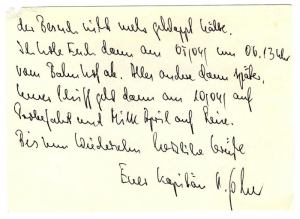 der Besuch nicht mehr geklappt hätte.
Ich hole Euch dann am 07/04/ um 06.13 Uhr
vom Bahnhof ab. Alles andere dann später.
Unser Schiff geht dann am 10/04/ auf
Probefahrt und Mitte April auf Reise.
Bis zum Wiedersehn herzliche Grüße
Euer Kapitän